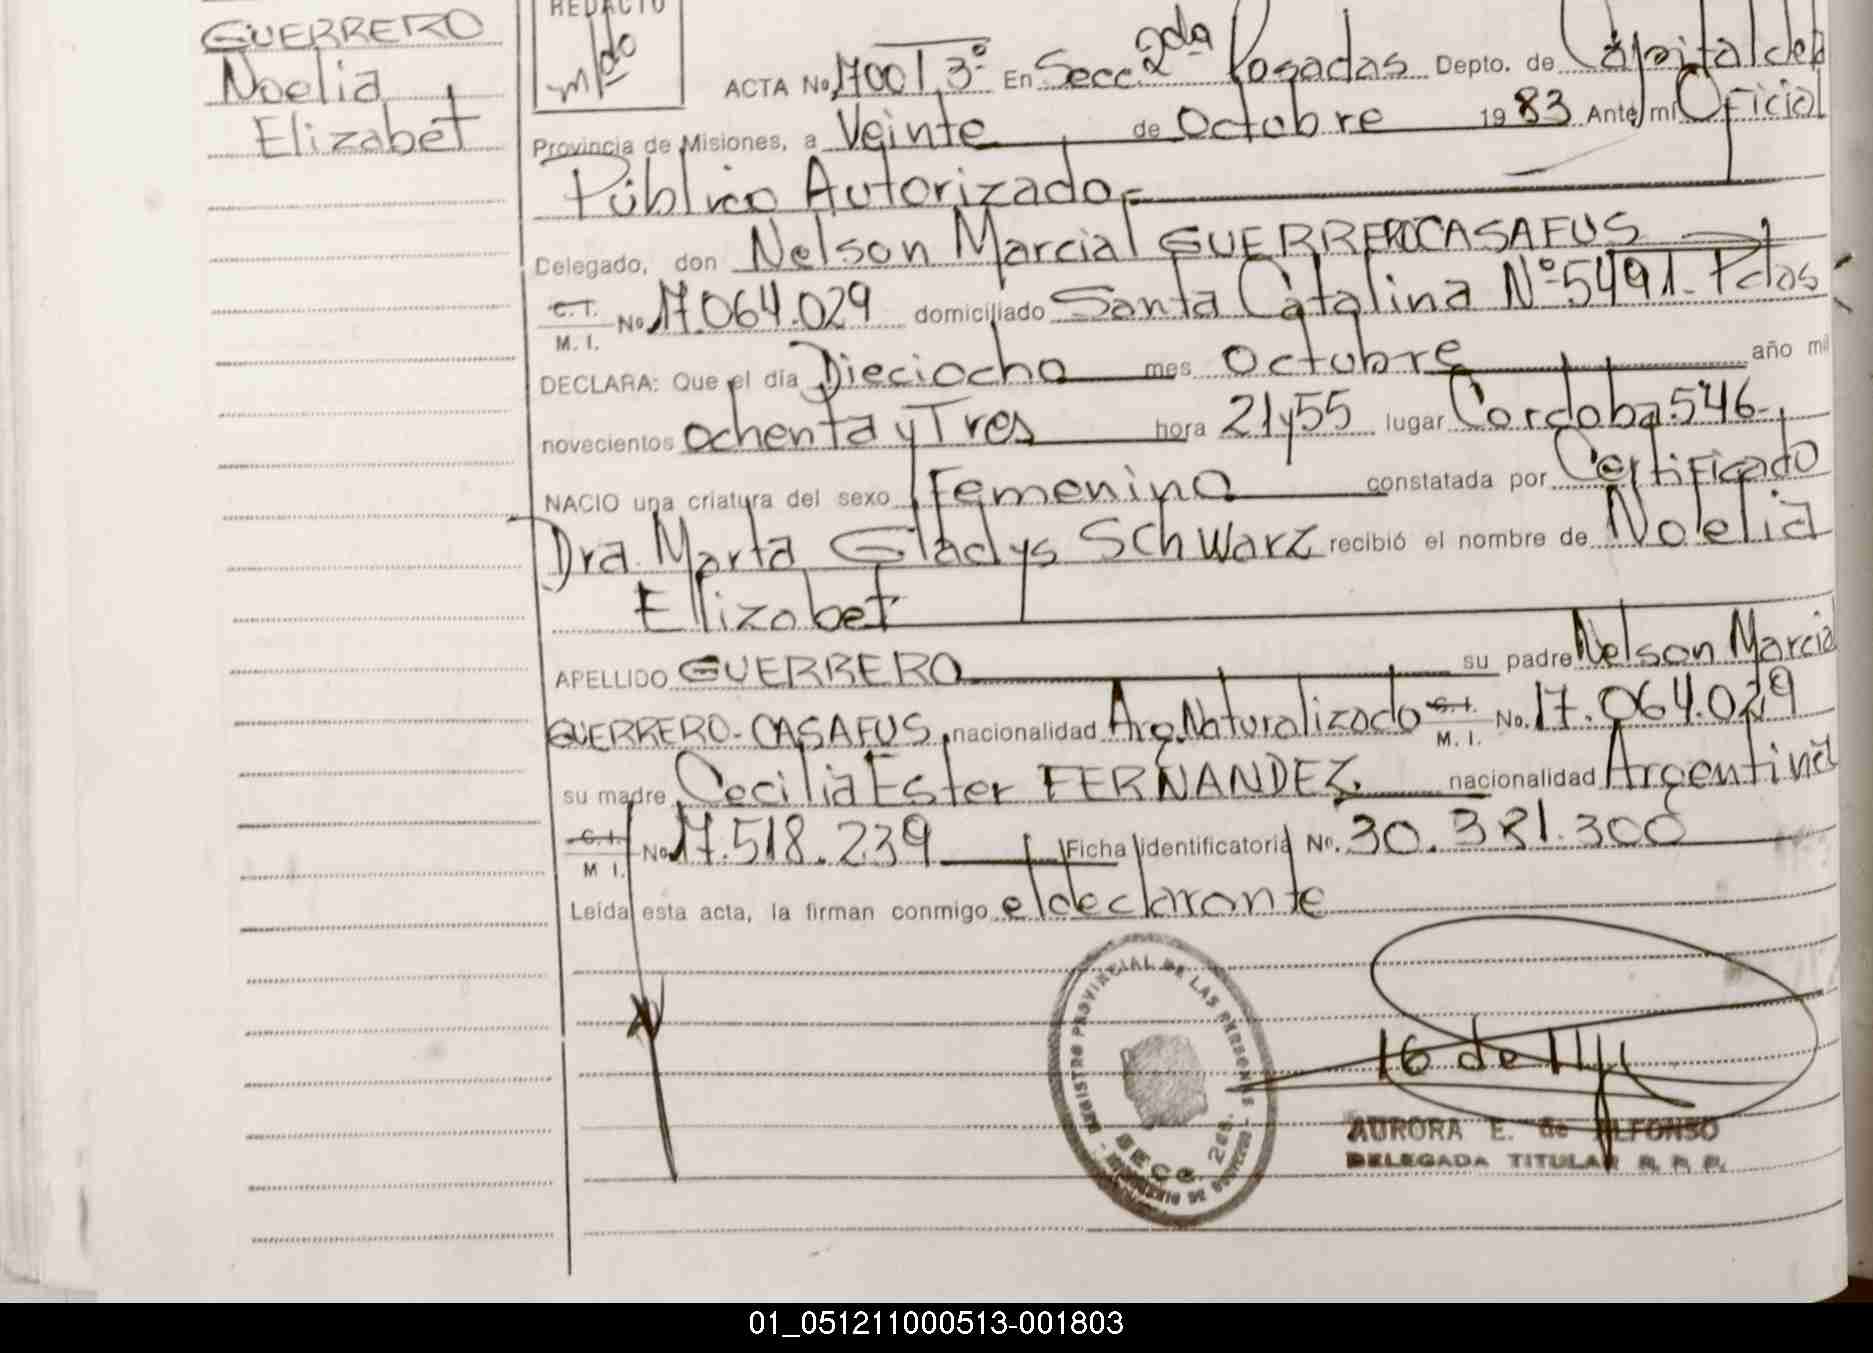 GUERRERO
Noelia
Elizabet
REDACTO
ACTA No 1700 T 3º En Secc 2da Posadas Depto. de Capital del
Provincia de Misiones, a Veinte de Octubre 1983 Ante mí Oficial
Público Autorizado
Delegado, don Nelson Marcial GUERRERO CASAFUS
C. I.
M. I. No 17.064.029 domiciliado Santa Catalina Nº 5491- Pdas
DECLARA: Que el día Dieciocho mes Octubre año mil
novecientos ochenta y Tres hora 21 y 55 lugar Cordoba 546
NACIO una criatura del sexo Femenino constatada por Certificado
Dra. Marta Gladys Schwarz recibió el nombre de Noelia
Elizabet
APELLIDO GUERRERO su padre Nelson Marcial
GUERRERO-CASAFUS, nacionalidad Arg. Naturalizado C. I. M. I. No. 17.064.029
su madre Cecilia Ester FERNANDEZ nacionalidad Argentina
C. I.
M I. No 17.518.239 Ficha identificatoria No. 30.381.300
Leída esta acta, la firman conmigo el declarante
REGISTRO PROVINCIAL DE LAS PERSONAS
SECC. 2da.
MINISTERIO DE GOBIERNO
AURORA E. de ALFONSO
DELEGADA TITULAR R. P. P.
01_051211000513-001803